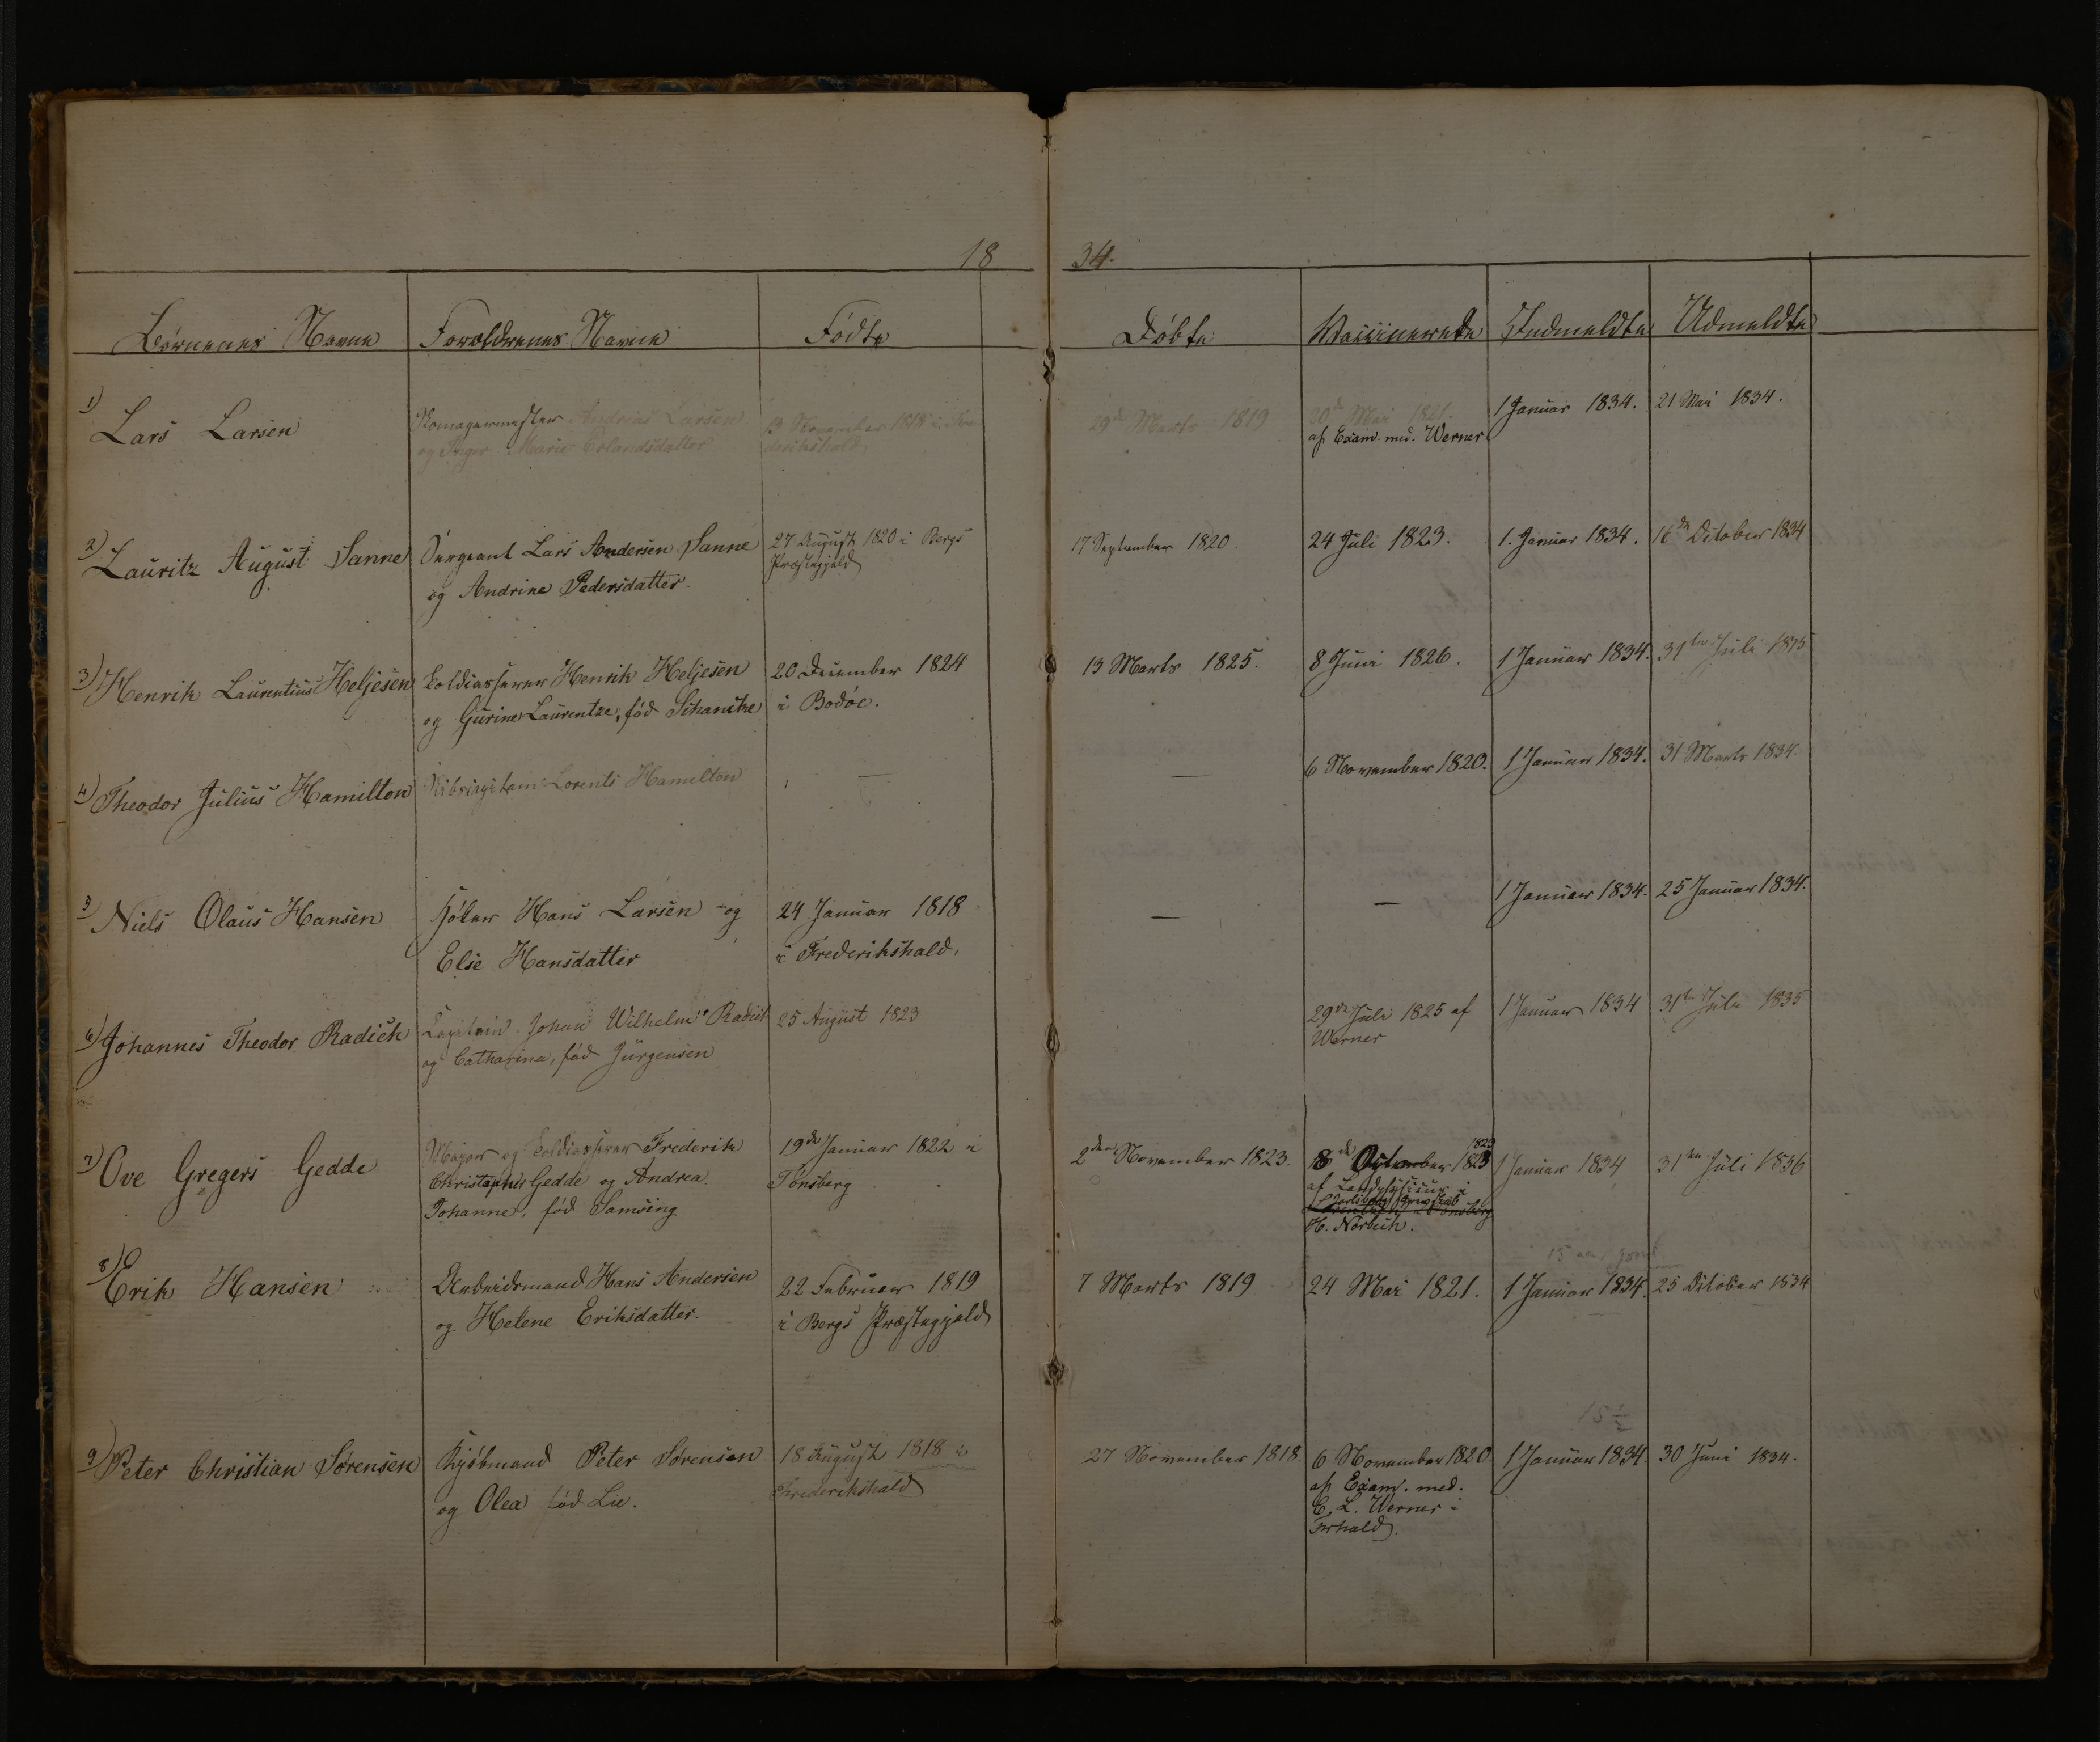 18 34.
Børnenes Navne Forældrenes Navne Fødte Døbte Vaccinerede Indmeldte Udmeldte
1) Lars Larsen
Andreas Larsen
og Inger Marie Erlandsdatter
13 November 1818 i Fre-
derikshald
29de Marts 1819
20de Mai 1821.
af Exam. med. Werner
1 Januar 1834.
21 Mai 1834.
2) Lauritz August Sanne
Sergeant Lars Andersen Sanne
og Andrine Pedersdatter.
27 August 1820 i Bergs
Præstegjeld
17 September 1820.
24 Juli 1823.
1. Januar 1834.
October 1834
3) Henrik Laurentius Heljesen
Toldkasserer Henrik Heljesen
og Gurine Laurentze, fød Schancke
20 December 1824
i Bodøe.
13 Marts 1825.
8 Juni 1826.
1 Januar 1834.
31te Juli 1835
4) Theodor Julius Hamilton
Lorents Hamilton
—
—
6 November 1820.
1 Januar 1834.
31 Marts 1834.
5) Niels Olaus Hansen
Høker Hans Larsen og
Else Hansdatter
24 Januar 1818
i Frederikshald.
—
—
1 Januar 1834.
25 Januar 1834.
6) Johannes Theodor Radich
Capitain Johan Wilhelm Radich
og Catharina, fød Jürgensen
25 August 1823
29de Juli 1825 af
Werner
1 Januar 1834
31te Juli 1835
7) Ove Gregers Gedde
Major og Toldkasserer Frederik
Christopher Gedde og Andrea
Johanne, fød Samsing
19de Januar 1822 i
Tønsberg
2den November 1823.
8de October 1823
1823
af Landphysicus i
H. Nørbech.
1 Januar 1834
31te Juli 1836
8) Erik Hansen
Arbeidsmand Hans Andersen
og Helene Eriksdatter.
22 Februar 1819
i Bergs Præstegjeld
7 Marts 1819
24 Mai 1821.
15
1 Januar 1834.
25 October 1834
9) Peter Christian Sørensen
Kjøbmand Peter Sørensen
og Olea fød Lie.
18 August 1818 i
Frederikshald
27 November 1818.
6 November 1820
af Exam. med.
C. L. Werner i
Frhald.
15 ½
1 Januar 1834.
30 Juni 1834.